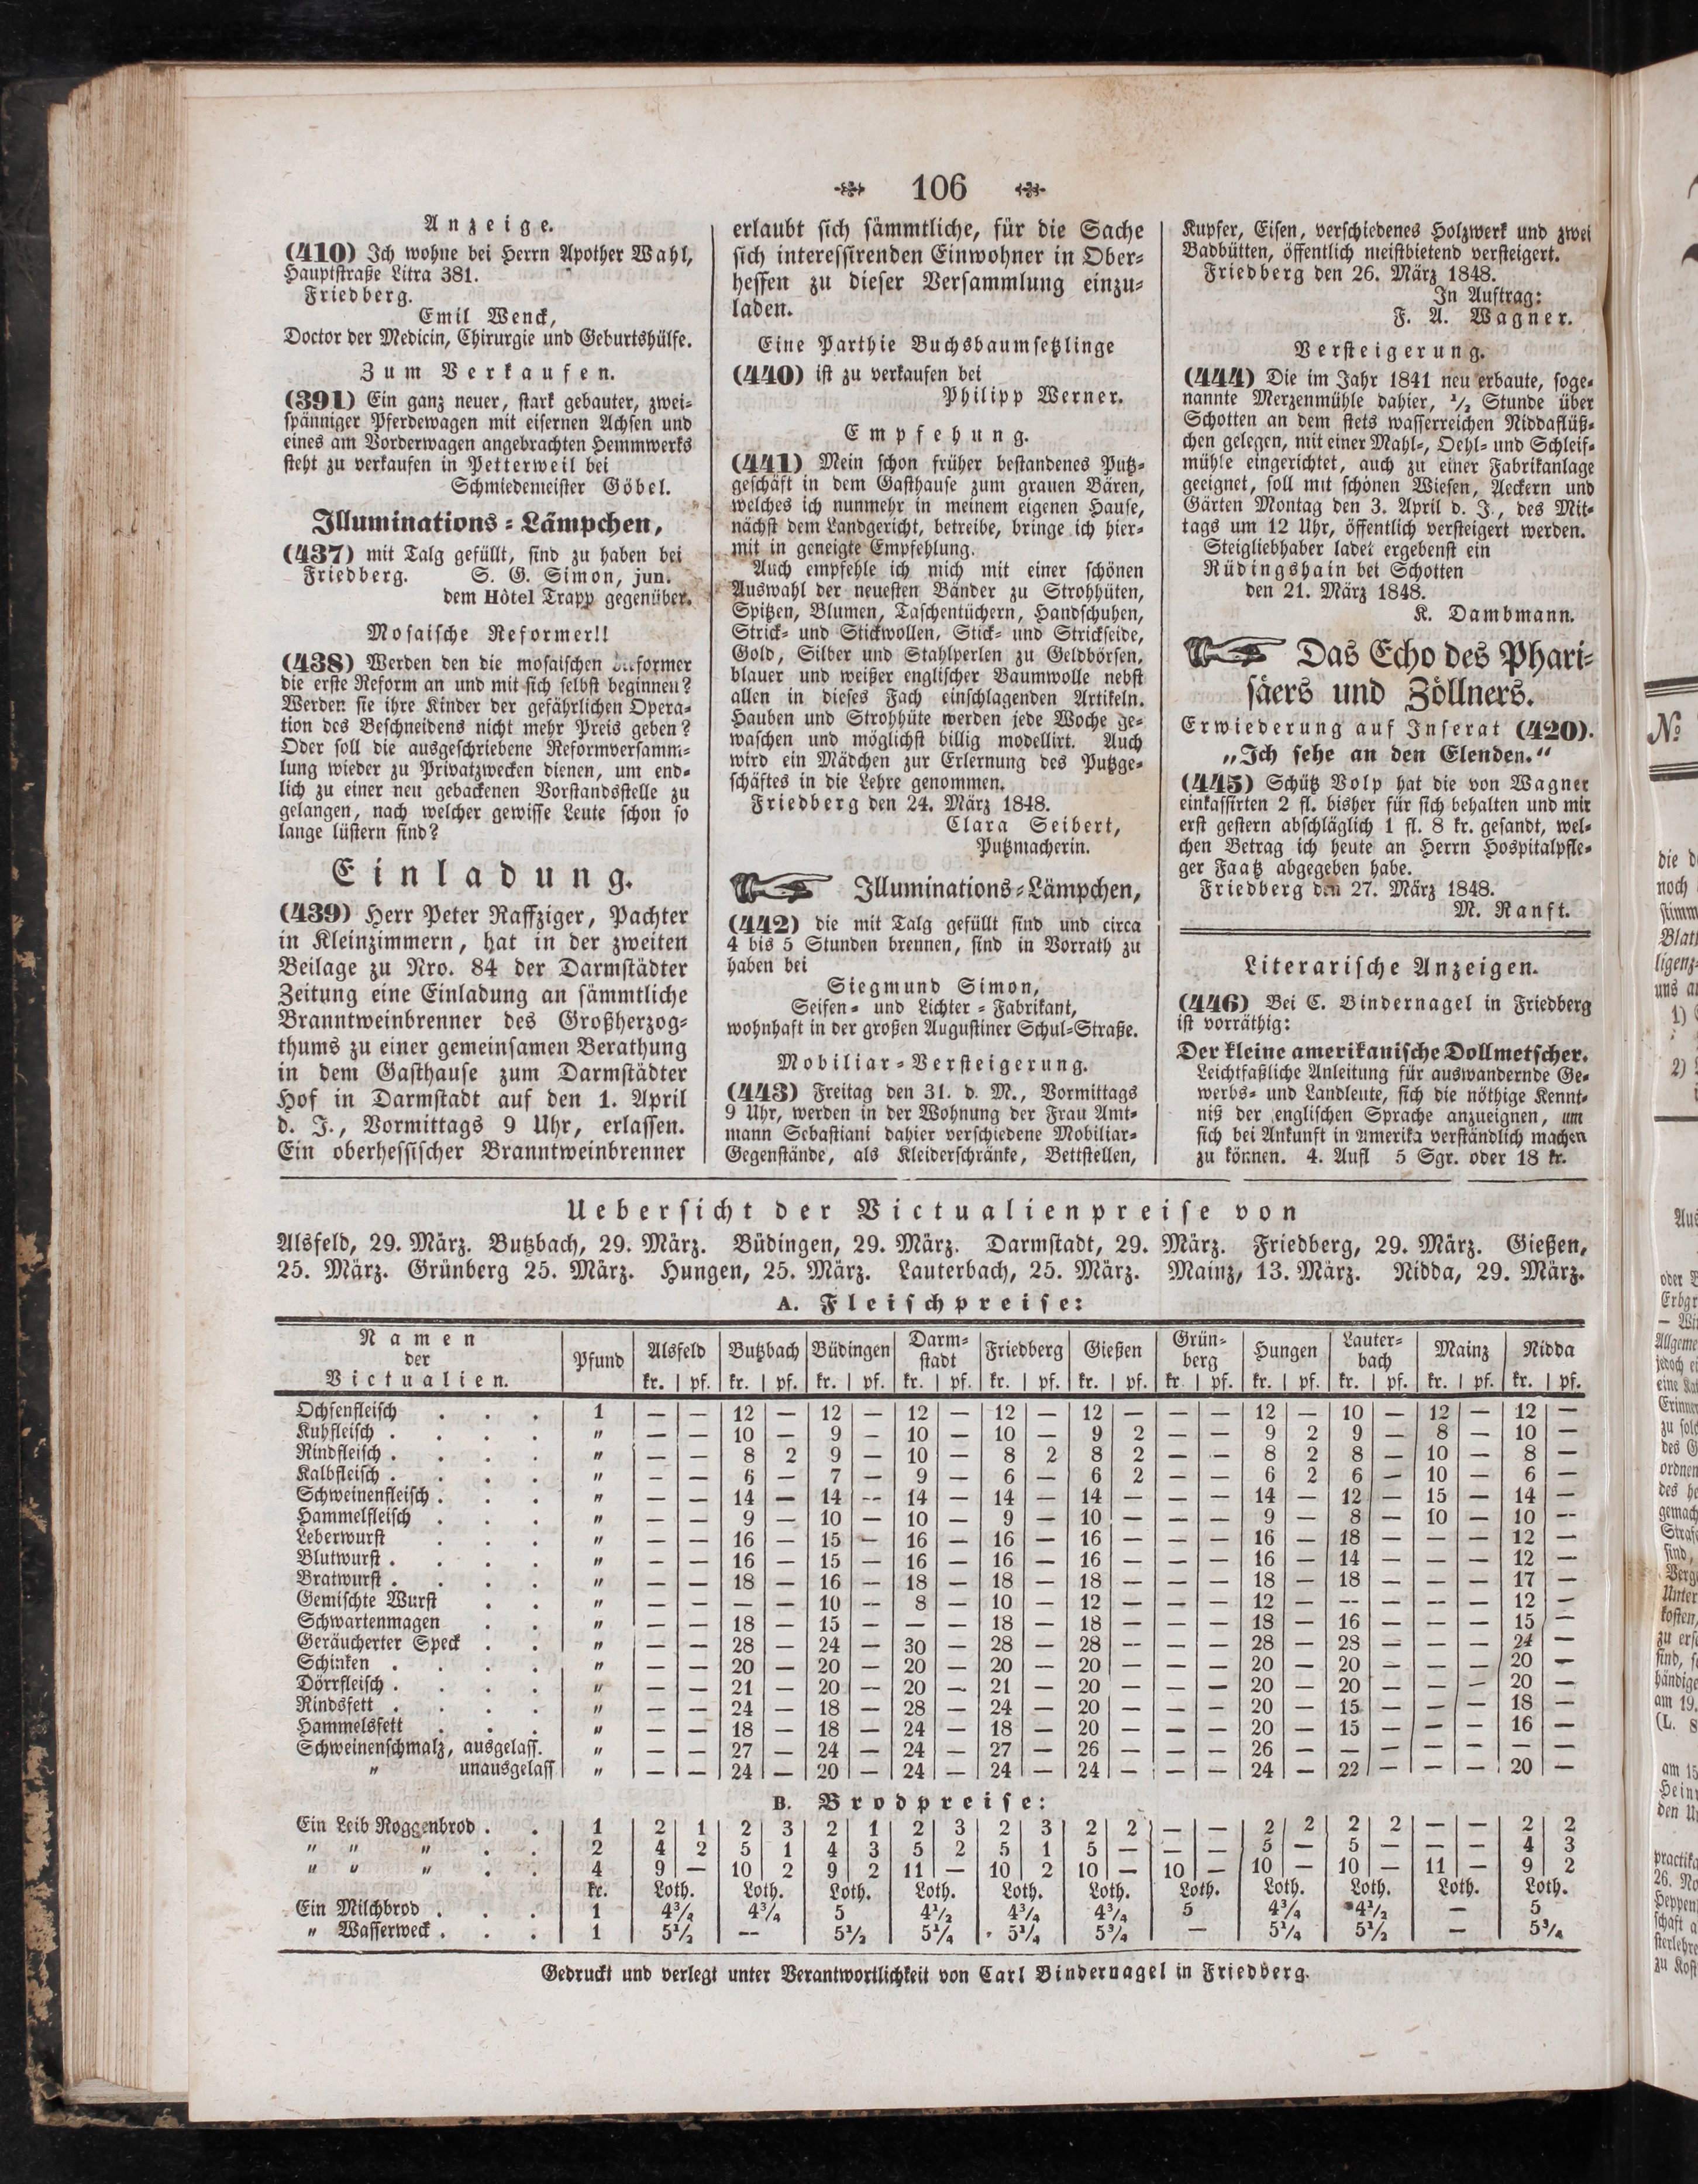 106
Anzeige.
(410) Ich wohne bei Herrn Apother Wahl,
Hauptstraße Litra 381.
Friedberg.
Emil Wenck,
Doctor der Medicin, Chirurgie und Geburtshülfe.
Zum Verkaufen.
(391) Ein ganz neuer, stark gebauter, zwei-
spänniger Pferdewagen mit eisernen Achsen und
eines am Vorderwagen angebrachten Hemmwerks
steht zu verkaufen in Petterweil bei
Schmiedemeister Göbel.
Illuminations-Lämpchen,
(437) mit Talg gefüllt, sind zu haben bei
Friedberg. S. G. Simon, jun.
dem Hôtel Trapp gegenüber.
Mosaische Reformer!!
(438) Werden den die mosaischen
die erste Reform an und mit sich selbst beginnen?
Werden sie ihre Kinder der gefährlichen Opera-
tion des Beschneidens nicht mehr Preis geben?
Oder soll die ausgeschriebene Reformversamm-
lung wieder zu Privatzwecken dienen, um end-
lich zu einer neu gebackenen Vorstandsstelle zu
gelangen, nach welcher gewisse Leute schon so
lange lüstern sind?
Einladung.
(439) Herr Peter Raffziger, Pachter
in Kleinzimmern, hat in der zweiten
Beilage zu Nro. 84 der Darmstädter
Zeitung eine Einladung an sämmtliche
Branntweinbrenner des Großherzog-
thums zu einer gemeinsamen Berathung
in dem Gasthause zum Darmstädter
Hof in Darmstadt auf den 1. April
d. J., Vormittags 9 Uhr, erlassen.
Ein oberhessischer Branntweinbrenner
erlaubt sich sämmtliche, für die Sache
sich interessirenden Einwohner in Ober-
hessen zu dieser Versammlung einzu-
laden.
Eine Parthie Buchsbaumsetzlinge
(440) ist zu verkaufen bei
Philipp Werner.
Empfehung.
(441) Mein schon früher bestandenes Putz-
geschäft in dem Gasthause zum grauen Bären,
welches ich nunmehr in meinem eigenen Hause,
nächst dem Landgericht, betreibe, bringe ich hier-
mit in geneigte Empfehlung.
Auch empfehle ich mich mit einer schönen
Auswahl der neuesten Bänder zu Strohhüten,
Spitzen, Blumen, Taschentüchern, Handschuhen,
Strick- und Stickwollen, Stick- und Strickseide,
Gold, Silber und Stahlperlen zu Geldbörsen,
blauer und weißer englischer Baumwolle nebst
allen in dieses Fach einschlagenden Artikeln.
Hauben und Strohhüte werden jede Woche ge-
waschen und möglichst billig modellirt. Auch
wird ein Mädchen zur Erlernung des Putzge-
schäftes in die Lehre genommen.
Friedberg den 24. März 1848.
Clara Seibert,
Putzmacherin.
Illuminations-Lämpchen,
(442) die mit Talg gefüllt sind und circa
4 bis 5 Stunden brennen, sind in Vorrath zu
haben bei
Siegmund Simon,
Seifen- und Lichter-Fabrikant,
wohnhaft in der großen Augustiner Schul-Straße.
Mobiliar-Versteigerung.
(443) Freitag den 31. d. M., Vormittags
9 Uhr, werden in der Wohnung der Frau Amt-
mann Sebastiani dahier verschiedene Mobiliar-
Gegenstände, als Kleiderschränke, Bettstellen,
Kupfer, Eisen, verschiedenes Holzwerk und zwei
Badbütten, öffentlich meistbietend versteigert.
Friedberg den 26. März 1848.
In Auftrag:
F. A. Wagner.
Versteigerung.
(444) Die im Jahr 1841 neu erbaute, soge-
nannte Merzenmühle dahier, 1/2 Stunde über
Schotten an dem stets wasserreichen Niddaflüß-
chen gelegen, mit einer Mahl-, Oehl- und Schleif-
mühle eingerichtet, auch zu einer Fabrikanlage
geeignet, soll mit schönen Wiesen, Aeckern und
Gärten Montag den 3. April d. J., des Mit-
tags um 12 Uhr, öffentlich versteigert werden.
Steigliebhaber ladet ergebenst ein
Rüdingshain bei Schotten
den 21. März 1848.
K. Dambmann.
Das Echo des Phari-
säers und Zöllners.
Erwiederung auf Inserat (420).
„Ich sehe an den Elenden.“
(445) Schütz Volp hat die von Wagner
einkassirten 2 fl. bisher für sich behalten und mir
erst gestern abschläglich 1 fl. 8 kr. gesandt, wel-
chen Betrag ich heute an Herrn Hospitalpfle-
ger Faatz abgegeben habe.
Friedberg den 27. März 1848.
M. Ranft.
Literarische Anzeigen.
(446) Bei C. Bindernagel in Friedberg
ist vorräthig:
Der kleine amerikanische Dollmetscher.
Leichtfaßliche Anleitung für auswandernde Ge-
werbs- und Landleute, sich die nöthige Kennt-
niß der englischen Sprache anzueignen, um
sich bei Ankunft in Amerika verständlich machen
zu können. 4. Aufl 5 Sgr. oder 18 kr.
Uebersicht der Victualienpreise von
Alsfeld, 29. März. Butzbach, 29. März. Büdingen, 29. März. Darmstadt, 29. März. Friedberg, 29. März. Gießen,
25. März. Grünberg 25. März. Hungen, 25. März. Lauterbach, 25. März. Mainz, 13. März. Nidda, 29. März.
A. Fleischpreise:
Namen der Victualien. | Pfund | Alsfeld | Butzbach | Büdingen | Darm-stadt | Friedberg | Gießen | Grün-berg | Hungen | Lauter-bach | Mainz | Nidda
kr. | pf. kr. | pf. kr. | pf. kr. | pf. kr. | pf. kr. | pf. kr | pf. kr. | pf. kr. | pf. kr. | pf. kr. | pf.
Ochsenfleisch . . . 1 — — 12 — 12 — 12 — 12 — 12 — — — 12 — 10 — 12 — 12 —
Kuhfleisch . . . . " — — 10 — 9 — 10 — 10 — 9 2 — — 9 2 9 — 8 — 10 —
Rindfleisch . . . . " — — 8 2 9 — 10 — 8 2 8 2 — — 8 2 8 — 10 — 8 —
Kalbfleisch . . . . " — — 6 — 7 — 9 — 6 — 6 2 — — 6 2 6 — 10 — 6 —
Schweinenfleisch . . . " — — 14 — 14 — 14 — 14 — 14 — — — 14 — 12 — 15 — 14 —
Hammelfleisch . . . " — — 9 — 10 — 10 — 9 — 10 — — — 9 — 8 — 10 — 10 —
Leberwurst . . . " — — 16 — 15 — 16 — 16 — 16 — — — 16 — 18 — — — 12 —
Blutwurst . . . . " — — 16 — 15 — 16 — 16 — 16 — — — 16 — 14 — — — 12 —
Bratwurst . . . . " — — 18 — 16 — 18 — 18 — 18 — — — 18 — 18 — — — 17 —
Gemischte Wurst . . " — — — — 10 — 8 — 10 — 12 — — — 12 — — — — — 12 —
Schwartenmagen . . " — — 18 — 15 — — — 18 — 18 — — — 18 — 16 — — — 15 —
Geräucherter Speck . . " — — 28 — 24 — 30 — 28 — 28 — — — 28 — 28 — — — 24 —
Schinken . . . . " — — 20 — 20 — 20 — 20 — 20 — — — 20 — 20 — — — 20 —
Dörrfleisch . . . . " — — 21 — 20 — 20 — 21 — 20 — — — 20 — 20 — — — 20 —
Rindsfett . . . . " — — 24 — 18 — 28 — 24 — 20 — — — 20 — 15 — — — 18 —
Hammelsfett . . . " — — 18 — 18 — 24 — 18 — 20 — — — 20 — 15 — — — 16 —
Schweinenschmalz, ausgelass. " — — 27 — 24 — 24 — 27 — 26 — — — 26 — — — — — — —
" unausgelass " — — 24 — 20 — 24 — 24 — 24 — — — 24 — 22 — — — 20 —
B. Brodpreise:
Ein Leib Roggenbrod . . 1 2 1 2 3 2 1 2 3 2 3 2 2 — — 2 2 2 2 — — 2 2
" " " . . 2 4 2 5 1 4 3 5 2 5 1 5 — — — 5 — 5 — — — 4 3
" " " . . 4 9 — 10 2 9 2 11 — 10 2 10 — 10 — 10 — 10 — 11 — 9 2
kr. Loth. Loth. Loth. Loth. Loth. Loth. Loth. Loth. Loth. Loth. Loth.
Ein Milchbrod . . . 1 4 3/4 4 3/4 5 4 1/2 4 3/4 4 3/4 5 4 3/4 4 1/2 — 5
" Wasserweck . . . 1 5 1/2 — 5 1/2 5 1/4 5 1/4 5 3/4 — 5 1/4 5 1/2 — 5 3/4
Gedruckt und verlegt unter Verantwortlichkeit von Carl Bindernagel in Friedberg.